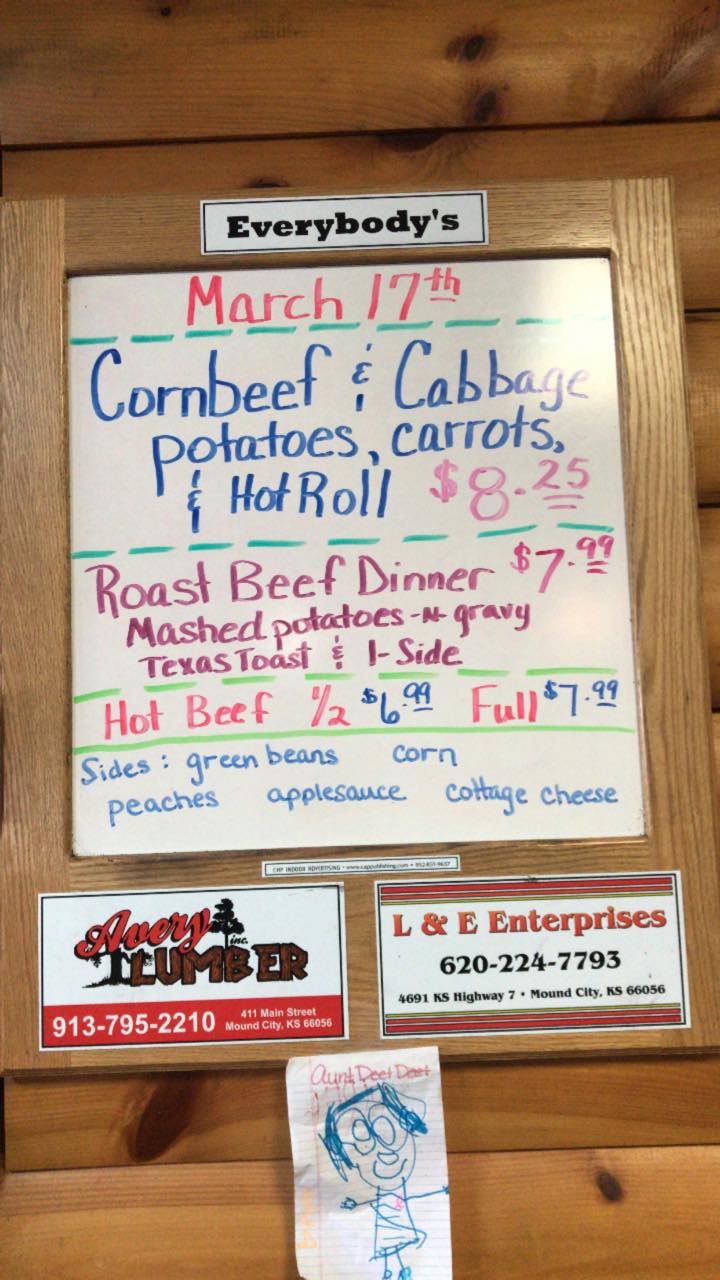 Everybody's
March 17th
Cornbeef & Cabbage
potatoes, carrots,
& Hot Roll $8.25
Roast Beef Dinner $7.99
Mashed potatoes -N- gravy
Texas Toast & 1-Side
Hot Beef 1/2 $6.99 Full $7.99
Sides: green beans corn
peaches applesauce cottage cheese
CHP INDOOR ADVERTISING
Avery inc.
LUMBER
913-795-2210
411 Main Street
Mound City, KS 66056
L & E Enterprises
620-224-7793
4691 KS Highway 7 • Mound City, KS 66056
Aunt Deet Deet